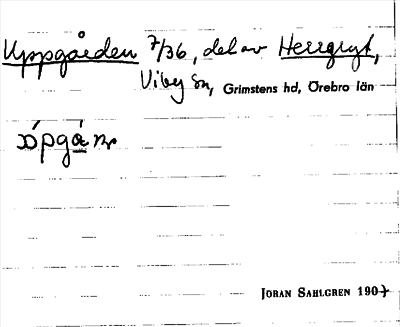 Uppgården 7/36, del av Herrgryt,
Viby sn, Grimstens hd, Örebro län
JORAN SAHLGREN 1907